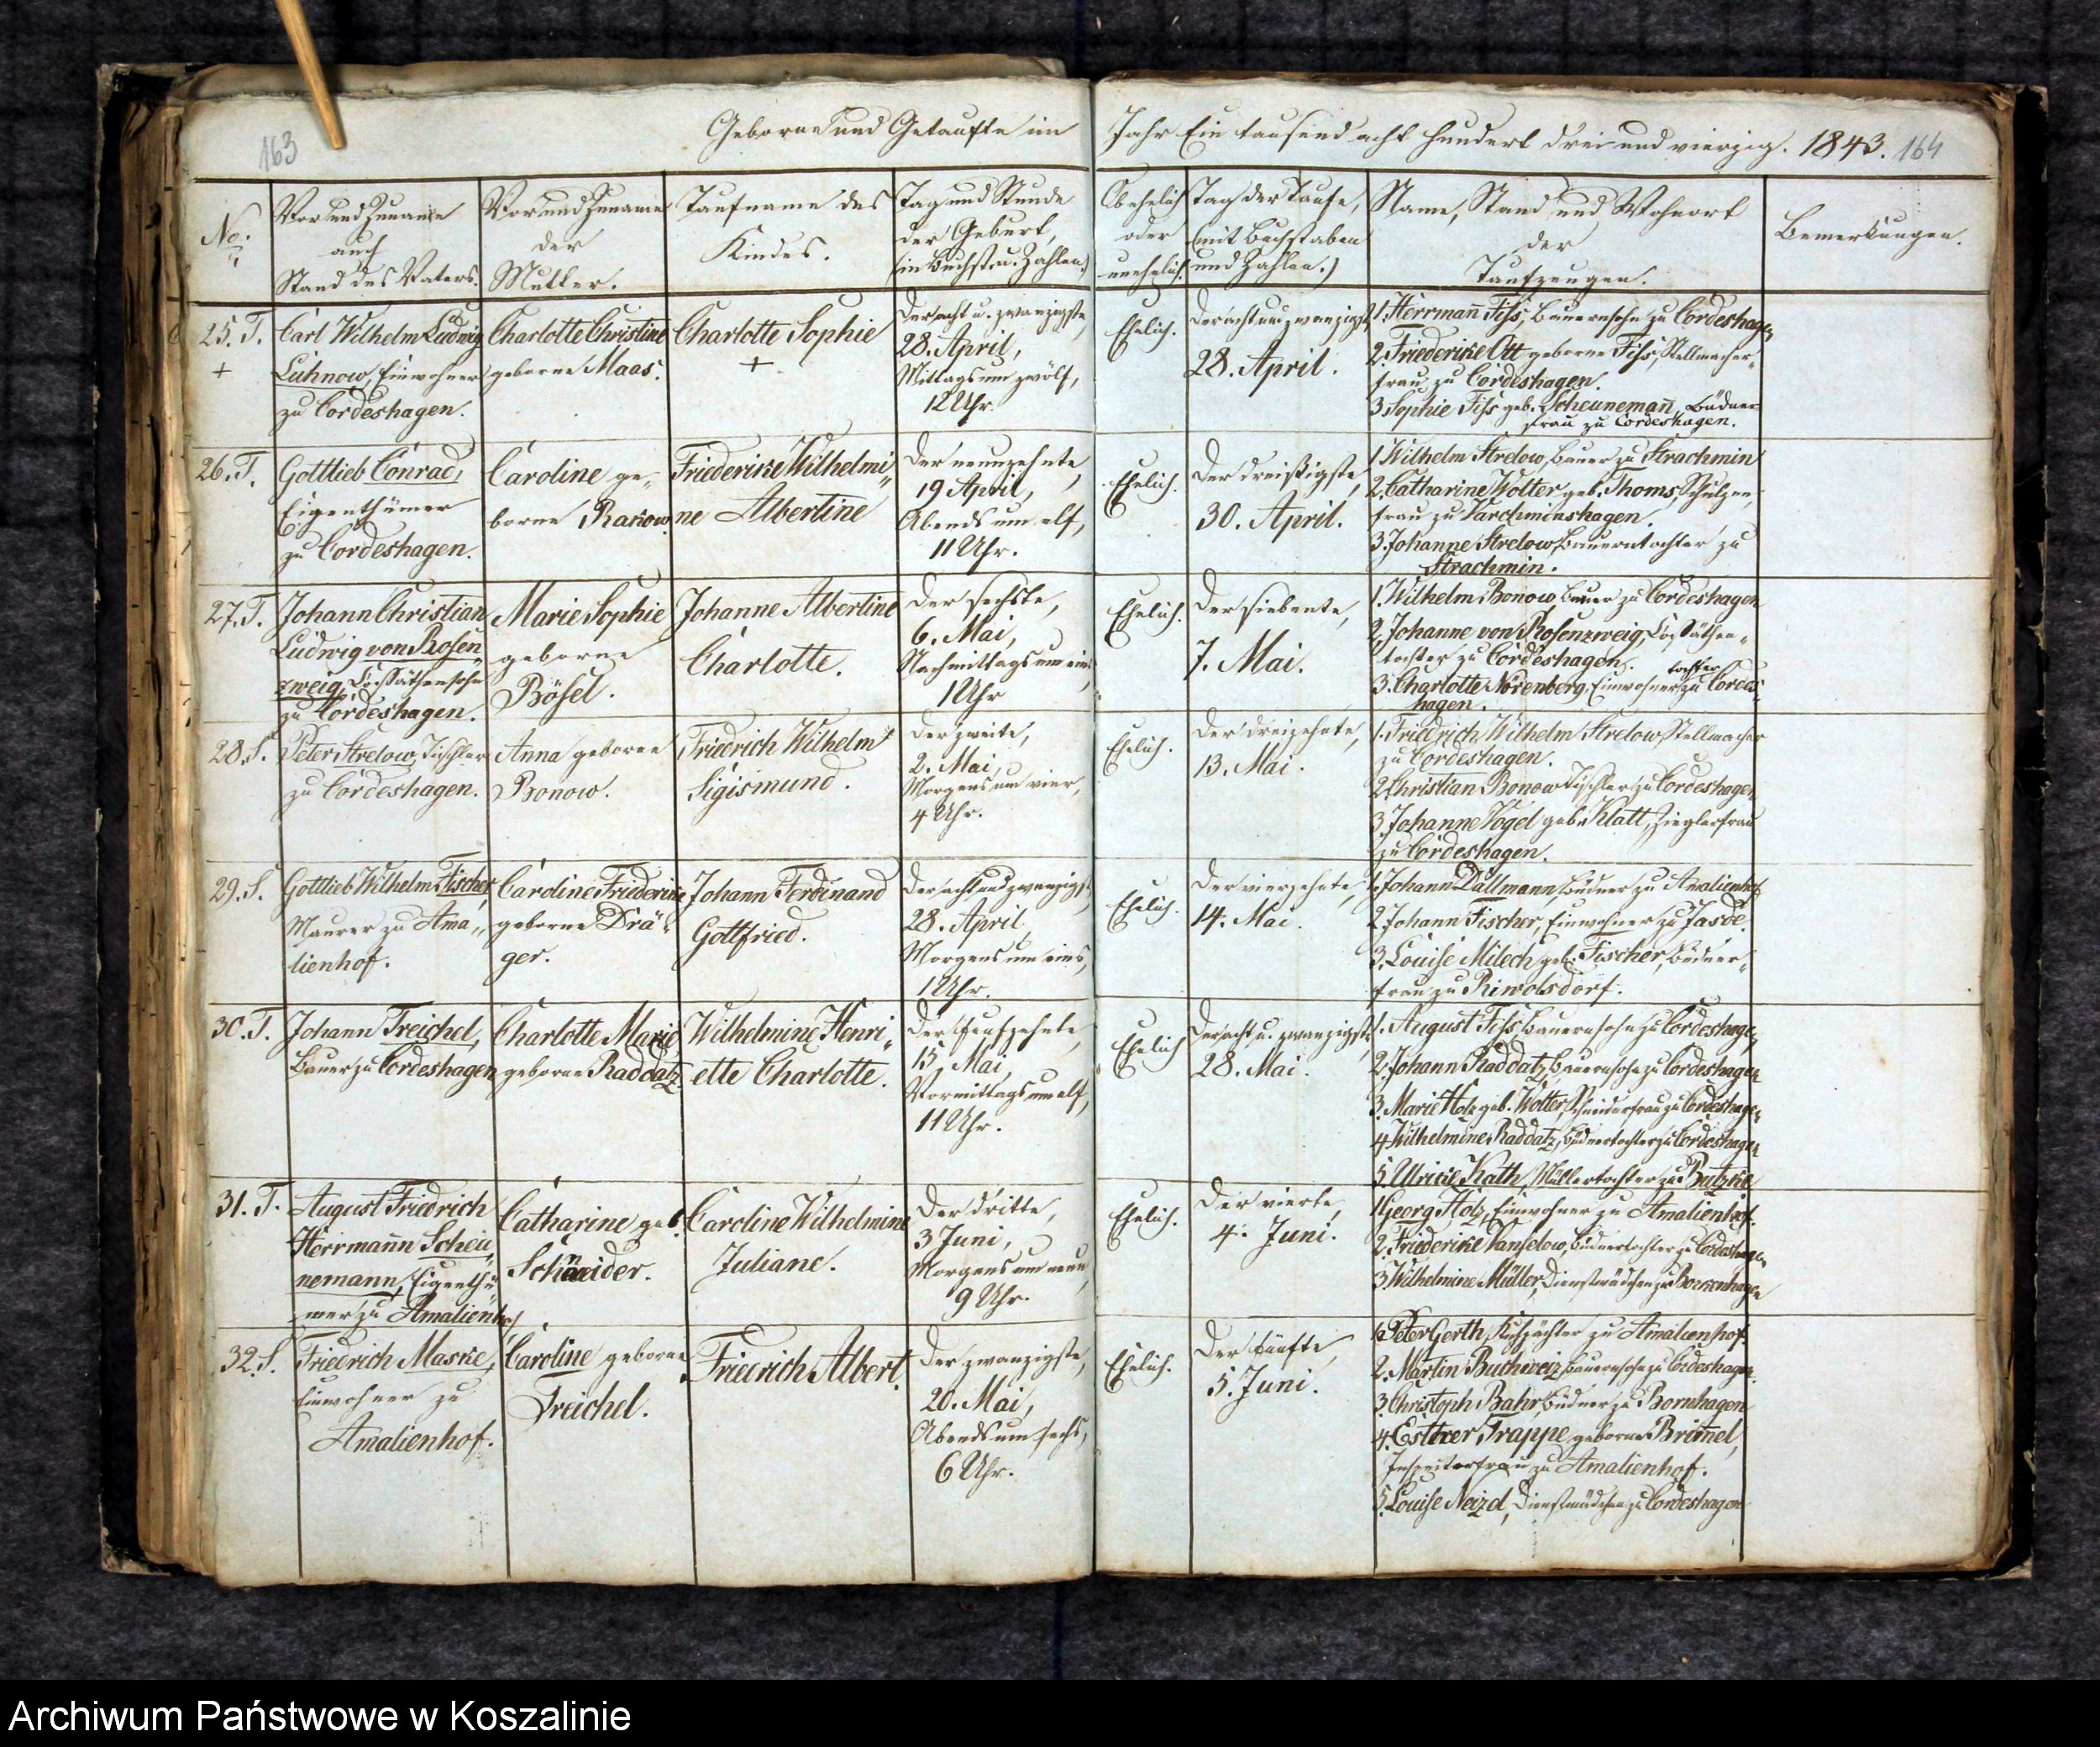 163
Geborne und Getaufte im
Jahr Ein tausend acht hundert drei und vierzig. 1843. 164
No.
Vor und Zuname
auch
Stand des Vaters.
Vor und Zuname
der
Mutter.
Taufname des
Kindes.
Tag und Stunde
der Geburt,
(in Buchst. u. Zahlen.)
Ob ehelich
oder
unehelich.
Tag der Taufe,
(mit Buchstaben
und Zahlen.)
Name, Stand und Wohnort
der
Taufzeugen.
Bemerkungen.
25. T.
+
Carl Wilhelm Ludwig
Lühnow, Einwohner
zu Cordeshagen.
Charlotte Christine
geborne Maas.
Charlotte Sophie
+
Der acht u. zwanzigste,
28. April,
Mittags um zwölf,
12 Uhr.
Ehelich.
Der acht und zwanzigste,
28. April.
1. Herrmann Fiss, Bauernsohn zu Cordeshagen
2. Friederike Ott geborne Fiss, Stellmacher-
frau zu Cordeshagen.
3 Sophie Fiss geb. Scheunemann, Büdner
frau zu Cordeshagen.
26. T.
Gottlieb Conrad,
Eigenthümer
zu Cordeshagen.
Caroline ge-
borne Rakow.
Friederike Wilhelmi-
ne Albertine
Der neunzehnte,
19 April,
Abends um elf,
11 Uhr.
Ehelich.
Der dreißigste,
30. April.
1 Wilhelm Strelow, Bauer zu Strachmin
2. Catharine Wolter geb. Thoms, Schulzen
frau zu Varchminshagen.
3. Johanne Strelow, Bauerntochter zu
Strachmin.
27. T.
Johann Christian
Ludwig von Rosen
zweig, Cossäthensohn
zu Cordeshagen.
Marie Sophie
geborne
Bösel.
Johanne Albertine
Charlotte.
Der sechste,
6. Mai,
Nachmittags um eins,
1 Uhr
Ehelich.
Der siebente,
7. Mai.
1. Wilhelm Bonow, Bauer zu Cordeshagen
2. Johanne von Rosenzweig, Cossäthen-
tochter zu Cordeshagen.
3. Charlotte Nörenberg, Einwohner tochter zu Cordes-
hagen.
28. S.
Peter Strelow, Tischler
zu Cordeshagen.
Anna geborne
Bonow.
Friedrich Wilhelm
Sigismund.
Der zweite,
2. Mai,
Morgens um vier,
4 Uhr.
Ehelich.
Der dreizehnte,
13. Mai.
1. Friedrich Wilhelm Strelow, Stellmacher
zu Cordeshagen.
2 Christian Bonow Tischler zu Cordeshagen
3 Johanne Vogel geb. Klatt, Zieglerfrau
zu Cordeshagen.
29. S.
Gottlieb Wilhelm Fischer,
Maurer zu Ama-
lienhof.
Caroline Friederike
geborne Drä-
ger.
Johann Ferdinand
Gottfried.
Der acht und zwanzigste,
28. April
Morgens um eins,
1 Uhr.
Ehelich.
Der vierzehnte,
14. Mai.
1. Johann Dallmann, Büdner zu Amalienhof
2 Johann Fischer, Einwohner zu Jasde.
3. Louise Milech geb. Fischer, Büdner-
frau zu Riwolsdorf.
30. T.
Johann Treichel,
Bauer zu Cordeshagen
Charlotte Marie
geborne Raddatz
Wilhelmine Henri-
ette Charlotte.
Der funfzehnte,
15, Mai,
Vormittags um elf,
11 Uhr.
Ehelich
Der acht u. zwanzigste,
28. Mai.
1. August Fiss Bauernsohn zu Cordeshagen
2. Johann Raddatz, Bauernsohn zu Cordeshagen
3. Marie Holz geb. Wolter, Schneiderfrau zu Cordeshagen
4 Wilhelmine Raddatz, Büdnertochter zu Cordeshagen
5. Ulrike Kath, Müllertochter zu Butzke
31. T.
August Friedrich
Herrmann Scheu
nemann, Eigenthü
mer zu Amalienhof
Catharine geb.
Schneider.
Caroline Wilhelmine
Juliane.
Der dritte,
3 Juni,
Morgens um neun
9 Uhr.
Ehelich.
Der vierte,
4. Juni.
1 Georg Holz, Einwohner zu Amalienhof.
2. Friederike Vanselow, Büdnertochter zu Cordeshagen
3. Wilhelmine Müller, Dienstmädchen zu Bornhagen
32. S.
Friedrich Maske,
Einwohner zu
Amalienhof.
Caroline geborne
Treichel.
Friedrich Albert.
Der zwanzigste,
20. Mai,
Abends um sechs,
6 Uhr.
Ehelich.
Der fünfte,
5. Juni.
1. Peter Gerth, Kuhpächter zu Amalienhof
2. Martin Buchweiz, Bauernsohn zu Cordeshagen.
3. Christoph Bahr, Büdner zu Bornhagen
4. Esther Trappe geborne Brümel,
Inspectorfrau zu Amalienhof.
5. Louise Neizel, Dienstmädchen zu Cordeshagen
Archiwum Państwowe w Koszalinie